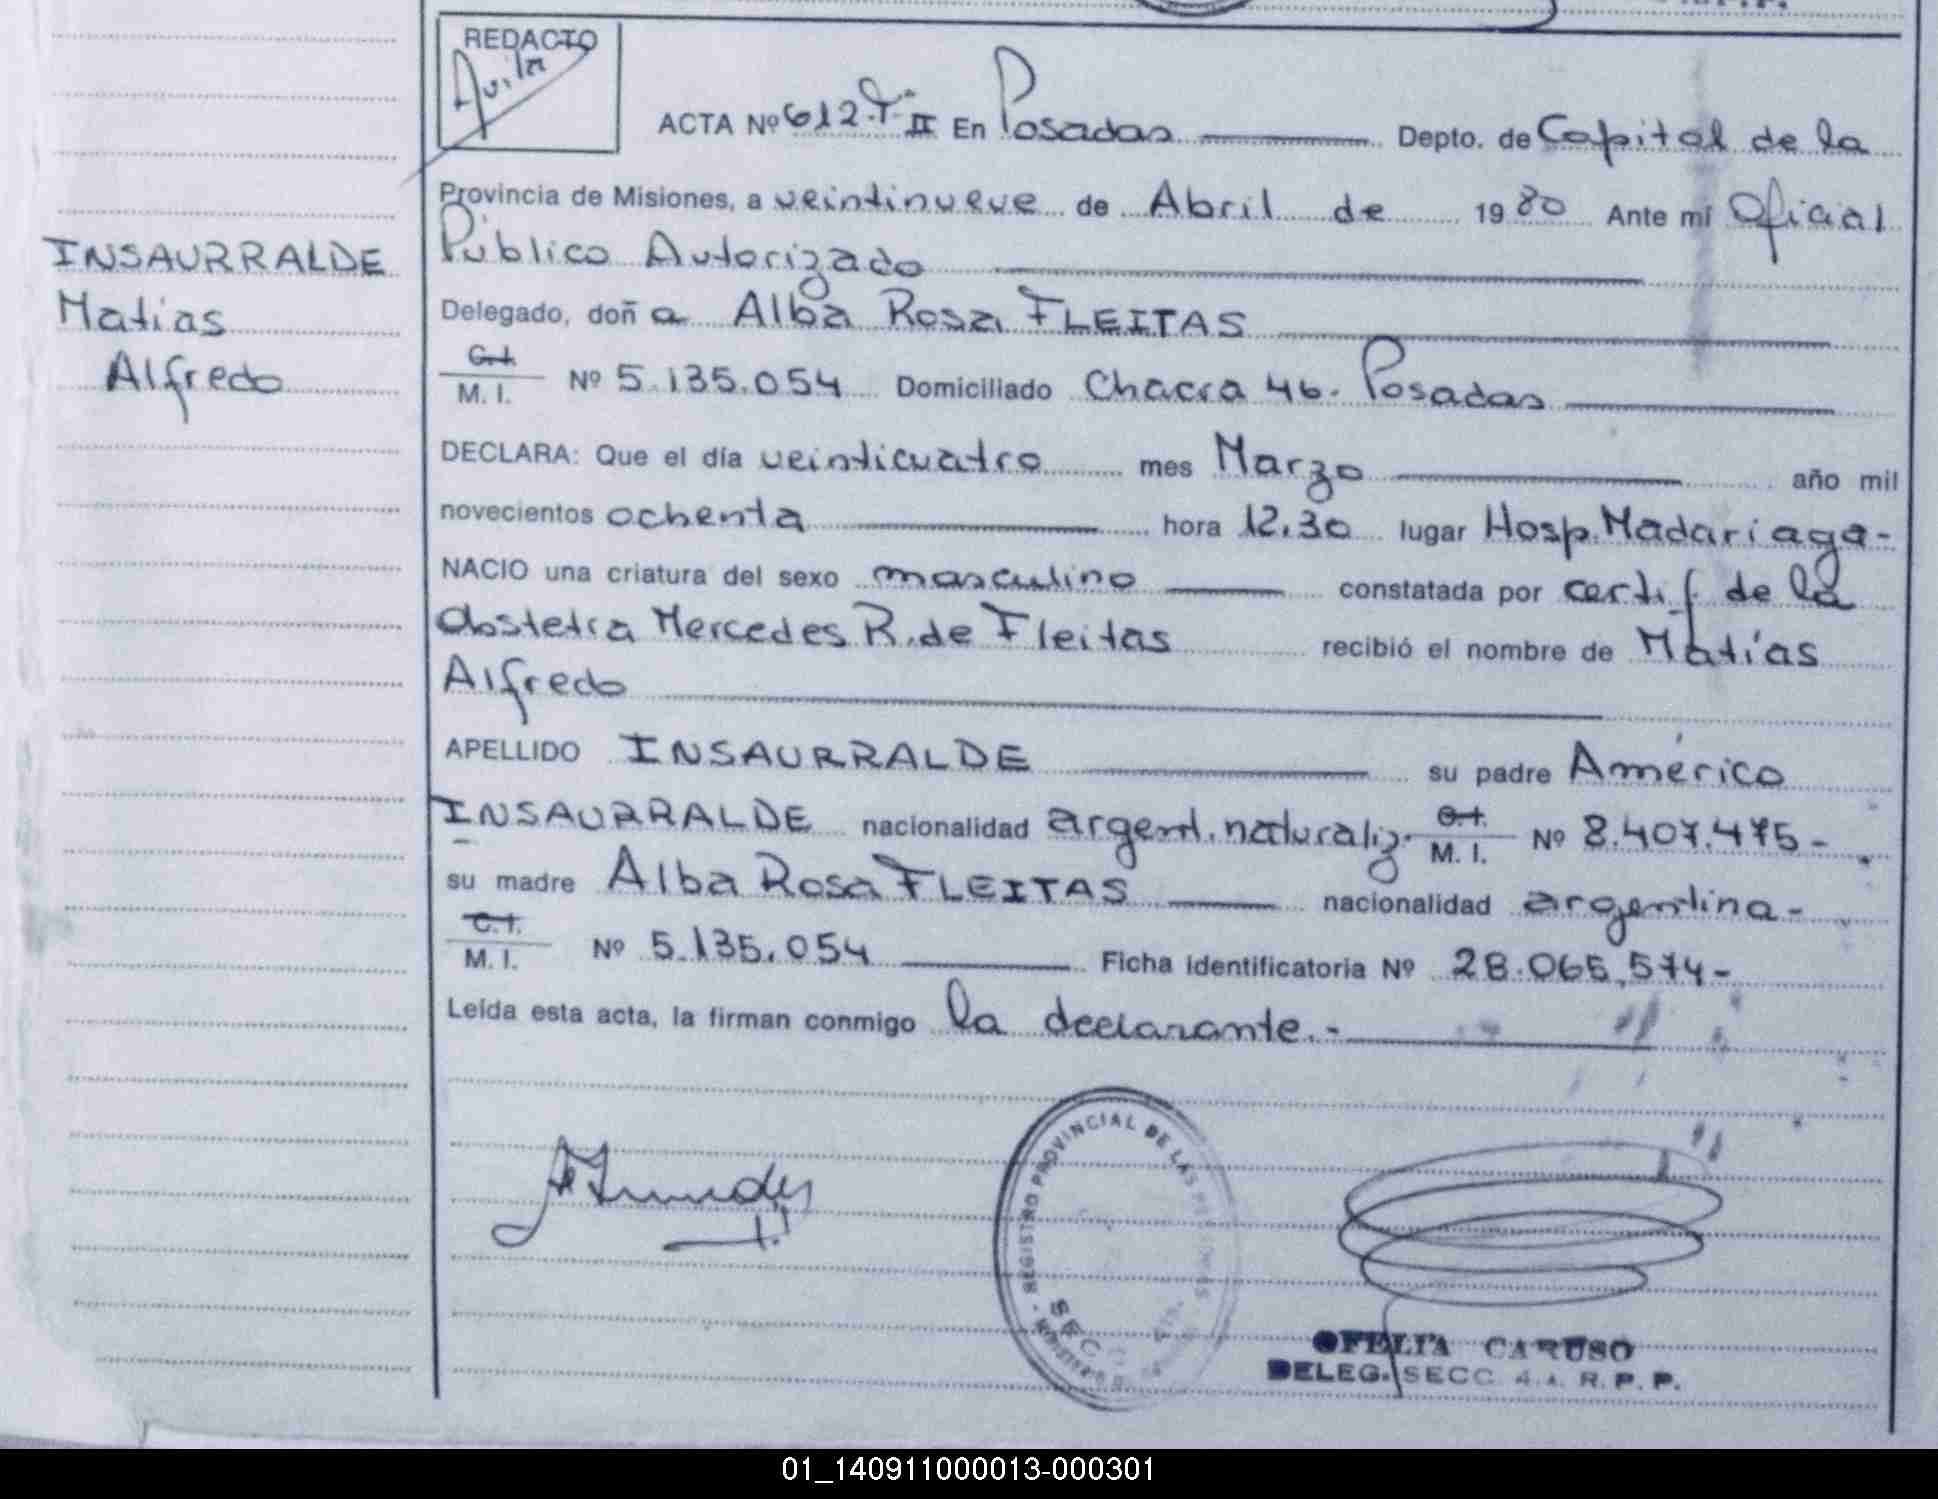 REDACTO
ACTA Nº 612 Tº II En Posadas Depto. de Capital de la
Provincia de Misiones, a veintinueve de Abril de 1980 Ante mí Oficial
Público Autorizado
INSAURRALDE
Matias
Alfredo
Delegado, doña Alba Rosa FLEITAS
C.I.
M. I. Nº 5.135.054 Domiciliado Chacra 46. Posadas
DECLARA: Que el día veinticuatro mes Marzo año mil
novecientos ochenta hora 12.30 lugar Hosp. Madariaga-
NACIO una criatura del sexo masculino constatada por certif de la
Obstetra Mercedes R. de Fleitas recibió el nombre de Matías
Alfredo
APELLIDO INSAURRALDE su padre Américo
INSAURRALDE nacionalidad argent. naturaliz. C.I. M. I. Nº 8.407.475-
su madre Alba Rosa FLEITAS nacionalidad argentina-
C.I.
M. I. Nº 5.135.054 Ficha Identificatoria Nº 28.065.574-
Leída esta acta, la firman conmigo la declarante.-
REGISTRO PROVINCIAL DE LAS PERSONAS
SECC
OFELIA CARUSO
DELEG. SECC. 4a. R. P. P.
01_140911000013-000301